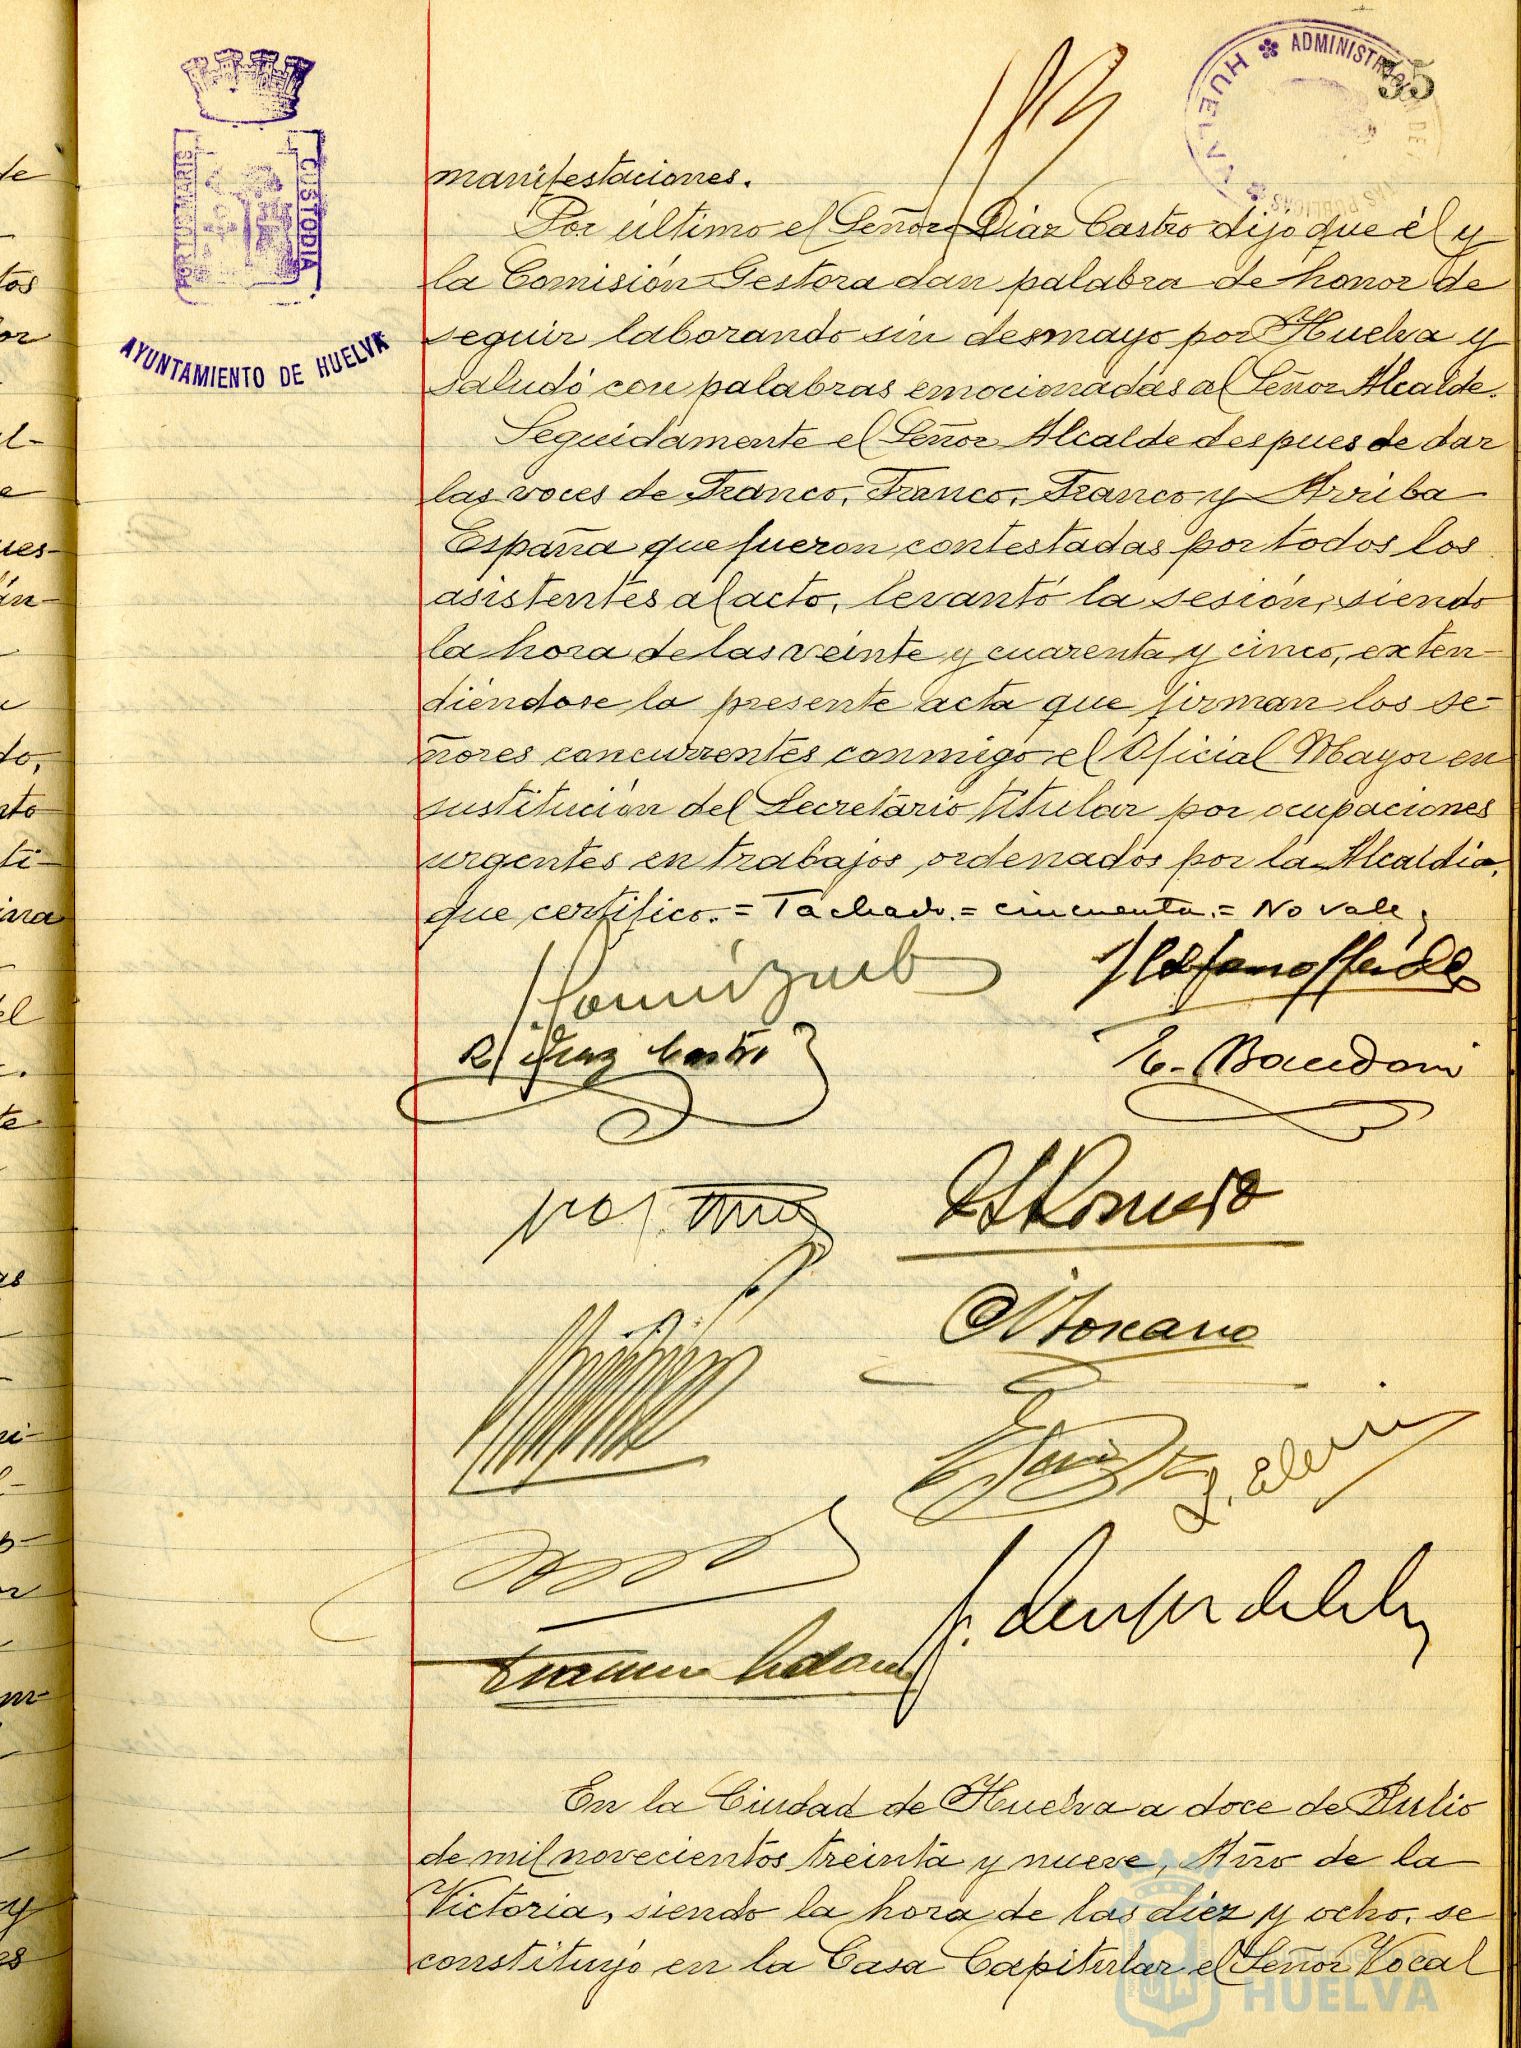 35
ADMINISTRACION DE
HUELVA
PORTUS MARIS
CUSTODIA
AYUNTAMIENTO DE HUELVA
manifestaciones.
Por último el Señor Díaz Castro dijo que él y
la Comisión Gestora dan palabra de honor de
seguir laborando sin desmayo por Huelva y
saludó con palabras emocionadas al Señor Alcalde.
Seguidamente el Señor Alcalde despues de dar
las voces de Franco, Franco, Franco y Arriba
España que fueron contestadas por todos los
asistentes al acto, levantó la sesión, siendo
la hora de las veinte y cuarenta y cinco, exten-
diéndose la presente acta que firman los se-
ñores concurrentes conmigo el Oficial Mayor en
sustitución del Secretario titular por ocupaciones
urgentes en trabajos ordenados por la Alcaldía,
que certifico.= Tachado.= cincuenta.= No vale,
R. Diaz Castro
E. Baudoni
Romero
Toscano
En la Ciudad de Huelva a doce de Julio
de mil novecientos treinta y nueve, Año de la
Victoria, siendo la hora de las diez y ocho, se
constituyó en la Casa Capitular el Señor Vocal
HUELVA